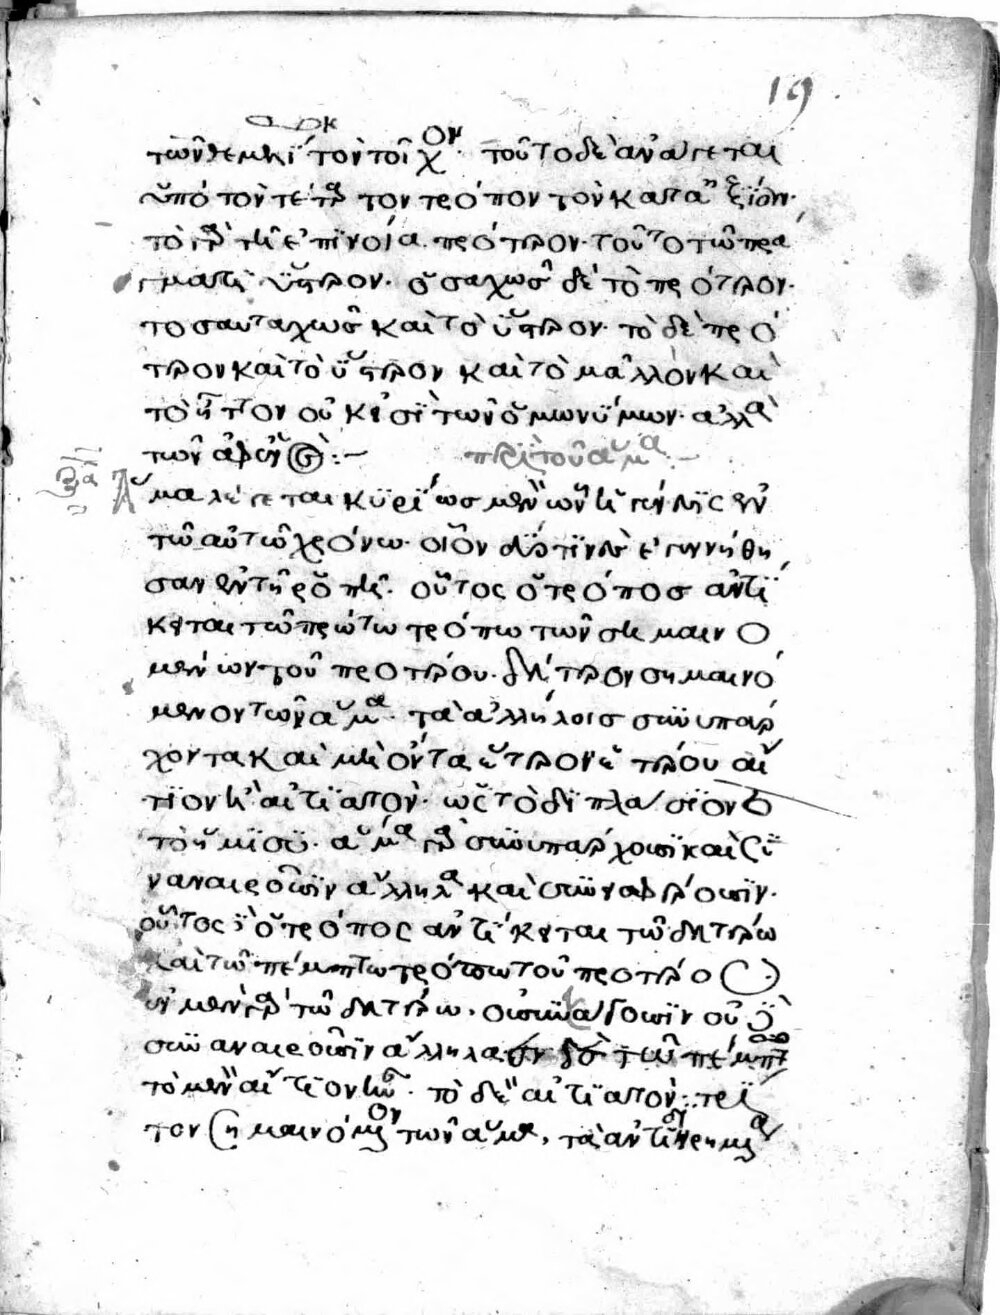 19
τῶν θεμελίων τὸν τοῖχον· τοῦτο δὲ ἀνάγεται
ὑπὸ τὸν τέταρτον τρόπον τὸν κατα ἀξίαν·
τὸ γὰρ τῆ ἐπινοία πρότερον· τοῦτο τῶ πρά
γματι ὕστερον· ὁσαχῶς δὲ τὸ πρότερον·
τοσαυταχῶς καὶ τὸ ὕστερον· τὸ δὲ πρό
τερον καὶ τὸ ὕστερον καὶ τὸ μᾶλλον καὶ
τὸ ἧττον οὐκ εἰσὶ τῶν ὁμωνύμων· ἀλλὰ
τῶν ἀφ' ἑνός:~ περὶ τοῦ ἅμα:~
Ἅμα λέγεται κυρίως μὲν ὧν ἡ γένεσις ἐν
τῶ αὐτῶ χρόνω· οἷον δύο τινὲς ἐγεννήθη
σαν ἐν τῆ ροπῆ· οὗτος ὁ τρόπος ἀντί
κειται τῶ πρώτω τρόπω τῶν σημαινο
μένων τοῦ προτέρου· δεύτερον σημαινό
μενον τῶν ἅμα· τὰ ἀλλήλοις συνυπάρ
χοντα καὶ μὴ ὄντα ἕτερον ἑτέρου αἴ
τιον ἢ αἰτιατὸν· ὡς τὸ διπλάσιον
τὸ ἥμισυ· ἅμα γὰρ συνυπάρχουσι καὶ συ
ναναιροῦσιν ἄλληλα καὶ συνεισφέρουσιν·
οὗτος ὁ τρόπος ἀντίκειται τῶ δευτέρω
καὶ τῶ πέμπτω τρόπω τοῦ προτέρου·
ἐν μὲν γὰρ τῶ δευτέρω· συνεισάγουσιν οὐ
συναναιροῦσιν ἄλληλα ἐν δὲ τῶ πέμπτω
τὸ μὲν αἴτιον ἦν· τὸ δὲ αἰτιατὸν· τρί
τον σημαινόμενον τῶν ἅμα, τὰ ἀντιδιηρημένα